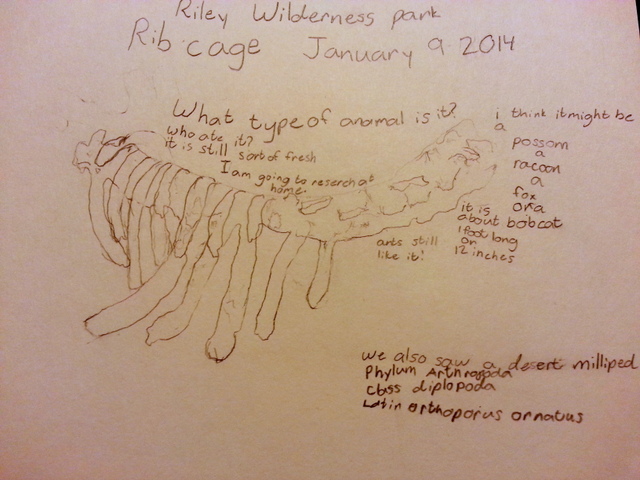 Riley Wilderness park
Rib cage January 9 2014
What type of anamal is it?
who ate it?
it is still sort of fresh
I am going to reserch at
home.
i think it might be
a
possom
a
racoon
a
fox
or a
bobcat
it is
about
1 foot long
or
12 inches
ants still
like it!
we also saw a desert milliped
Phylum Arthropoda
class diplopoda
Latin orthoporus ornatus